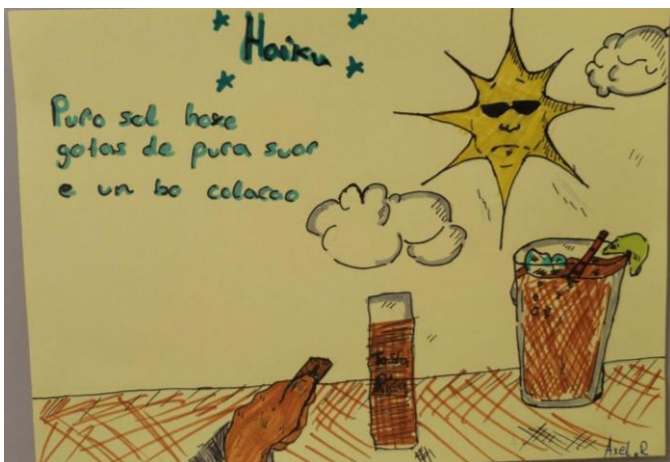 Haiku
Puro sol hoxe
gotas de pura suor
e un bo colacao
Tosta
Rica
Axel.R